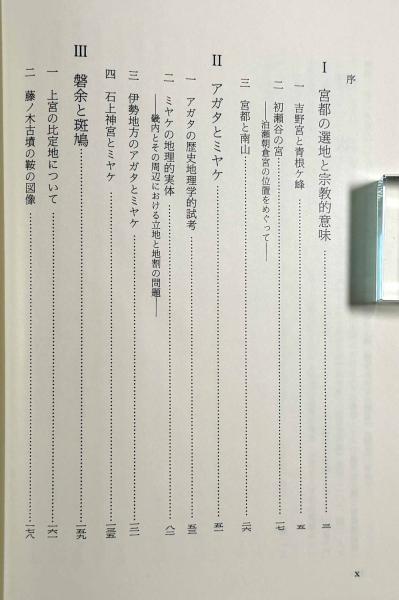 序
Ⅰ 宮都の選地と宗教的意味……三
一 吉野宮と青根ケ峰……五
二 初瀬谷の宮……一七
――泊瀬朝倉宮の位置をめぐって――
三 宮都と南山……二六
Ⅱ アガタとミヤケ……五一
一 アガタの歴史地理学的試考……五三
二 ミヤケの地理的実体……八二
――畿内とその周辺における立地と地割の問題――
三 伊勢地方のアガタとミヤケ……一二一
四 石上神宮とミヤケ……一三五
Ⅲ 磐余と斑鳩……一五九
一 上宮の比定地について……一六一
二 藤ノ木古墳の鞍の図像……一七八
x